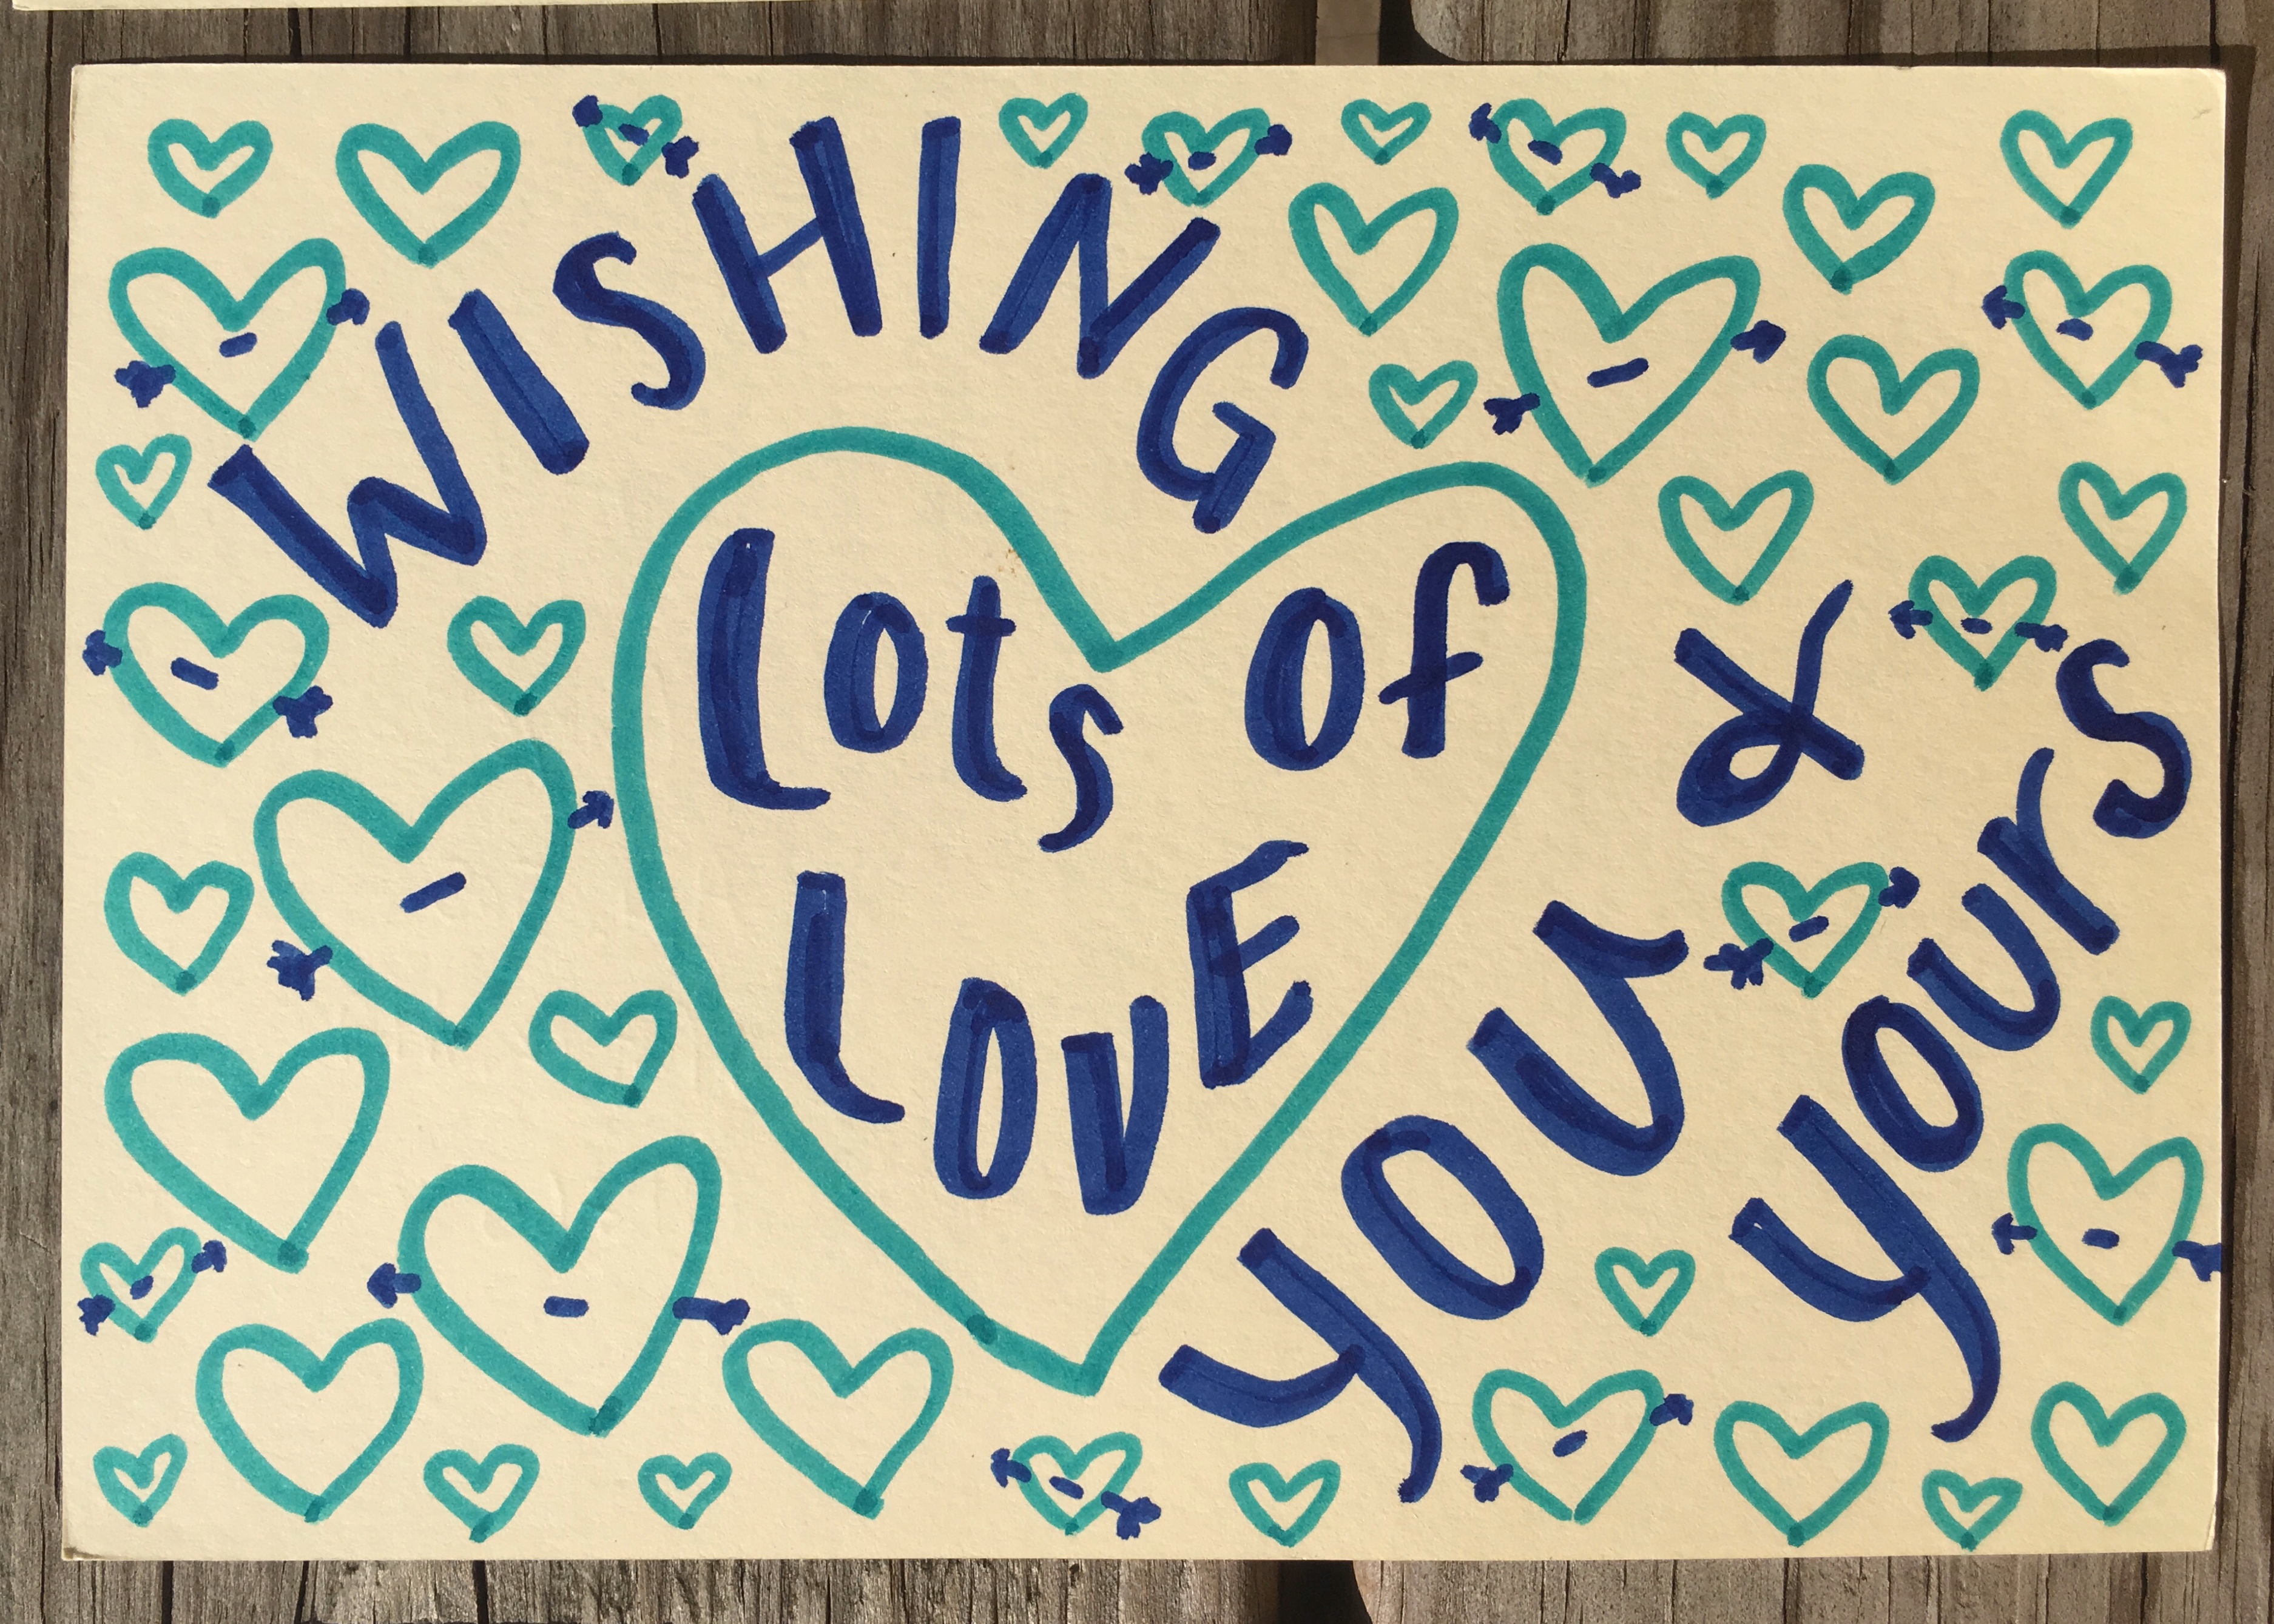 WISHING
Lots of
LOVE
YOU &
Yours